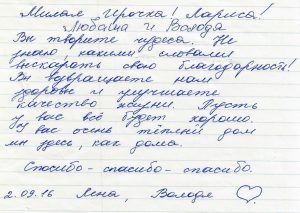 Милая Ирочка! Лариса!
Любаша и Володя
Вы творите чудеса. Не
знаю какими словами
высказать свою благодарность!
Вы возвращаете нам
здоровье и улучшаете
качество жизни. Пусть
у вас всё будет хорошо.
У вас очень тёплый дом
мы здесь, как дома.
Спасибо-спасибо-спасибо.
2.09.16 Яна, Володя